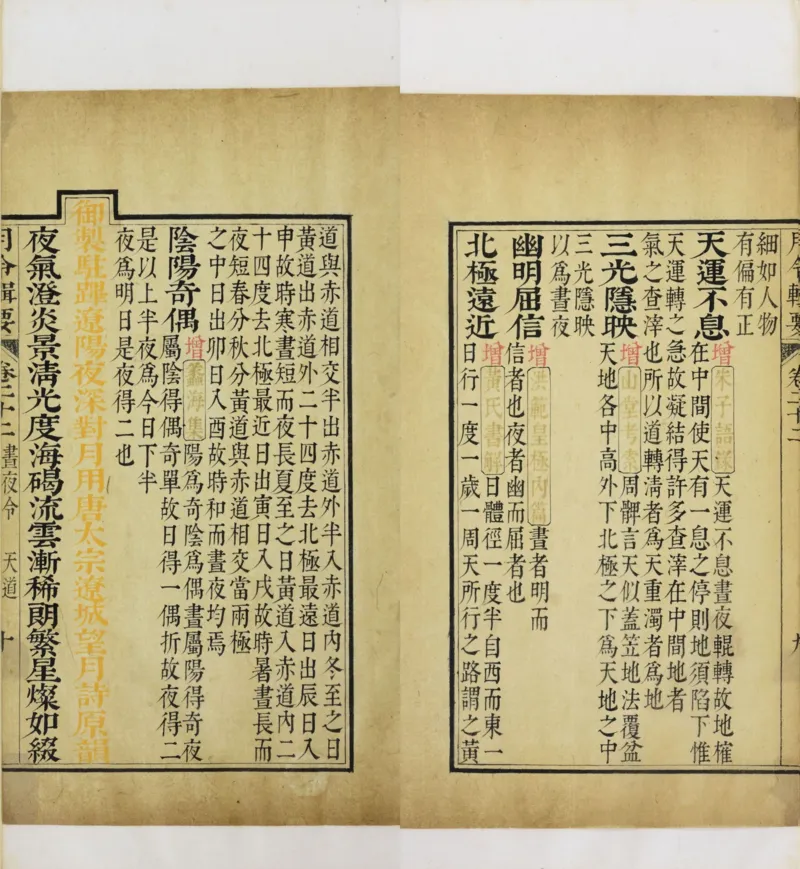 月令輯要 卷二十二 九
細如人物
有偏有正
天運不息 增 朱子語錄 天運不息晝夜輥轉故地榷
在中間使天有一息之停則地須陷下惟
天運轉之急故凝結得許多查滓在中間地者
氣之查滓也所以道轉清者為天重濁者為地
三光隱映 增 山堂考索 周髀言天似蓋笠地法覆盆
天地各中高外下北極之下為天地之中
三光隱映
以為晝夜
幽明屈信 增 洪範皇極內篇 晝者明而
信者也夜者幽而屈者也
北極遠近 增 黃氏書解 日體徑一度半自西而東一
日行一度一歲一周天所行之路謂之黃
道與赤道相交半出赤道外半入赤道內冬至之日
黃道出赤道外二十四度去北極最遠日出辰日入
申故時寒晝短而夜長夏至之日黃道入赤道內二
十四度去北極最近日出寅日入戌故時暑晝長而
夜短春分秋分黃道與赤道相交當兩極
之中日出卯日入酉故時和而晝夜均焉
陰陽奇偶 增 蠡海集 陽為奇陰為偶晝屬陽得奇夜
屬陰得偶奇單故日得一偶折故夜得二
是以上半夜為今日下半
夜為明日是夜得二也
御製駐蹕遼陽夜深對月用唐太宗遼城望月詩原韻
夜氣澄炎景清光度海碣流雲漸稀朗繁星燦如綴
月令輯要 卷二十二 晝夜令 天道 十